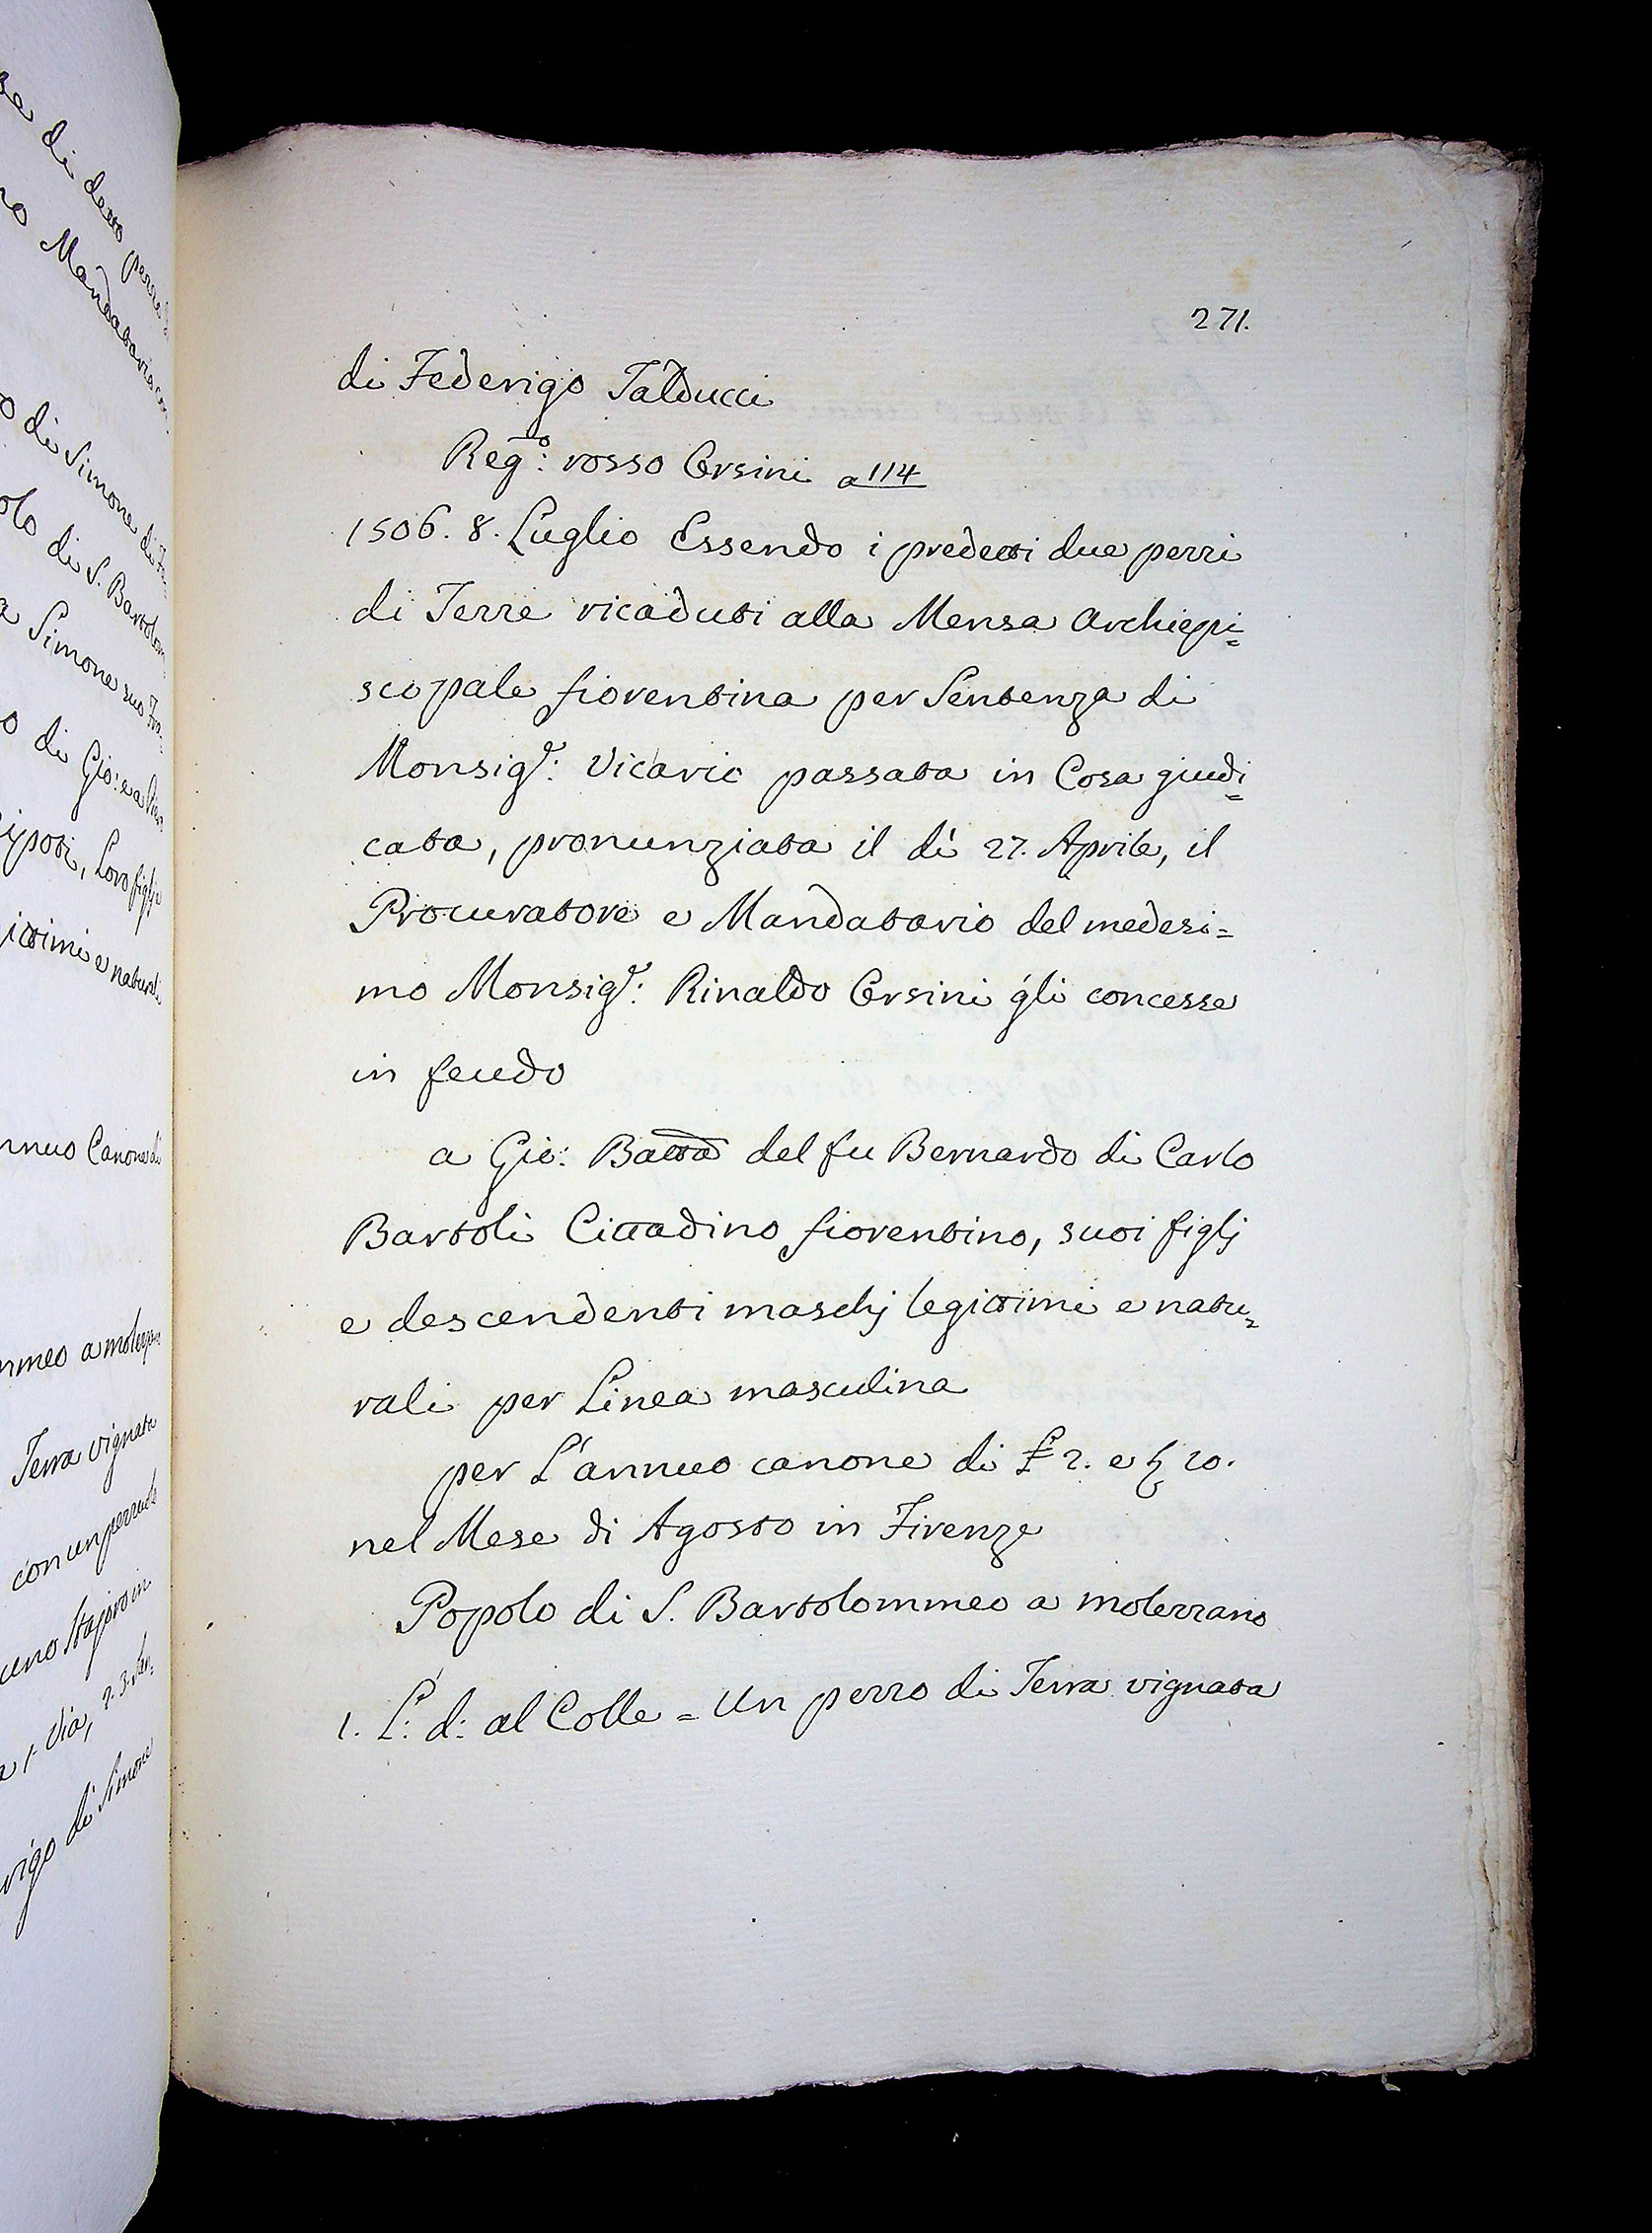 271.
di Federigo Talducci
Reg.º: rosso Orsini a 114
1506. 8. Luglio Essendo i predetti due pezzi
di Terre ricaduti alla Mensa Archiepi=
scopale fiorentina per Sentenza di
Monsig.r: Vicario passata in Cosa giudi=
cata, pronunziata il dì 27. Aprile, il
Procuratore e Mandatario del medesi=
mo Monsig.r: Rinaldo Orsini gli concesse
in feudo
a Gio: Batta del fu Bernardo di Carlo
Bartoli Cittadino fiorentino, suoi figlj
e descendenti maschj legittimi e natu=
rali per Linea masculina
per L'annuo canone di £ 2. e 20.
nel Mese di Agosto in Firenze
Popolo di S. Bartolommeo a molezzano
1. L: d: al Colle = Un pezzo di Terra vignata
di detto
Mandatario
di Simone di
di S. Bartolom
Simone suo
di Gio: e a
Loro figlj
e natural
Canone di
Terra vignata
con un
uno Stajoro in
Via, 2. 3.
di Simone